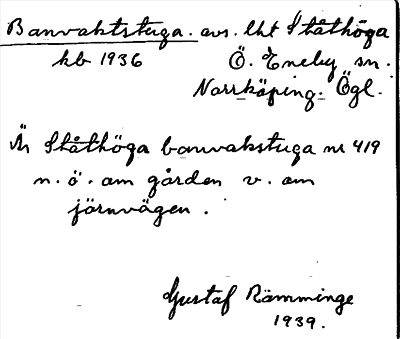 Banvaktstuga. avs. lht Ståthöga
hb 1936 Ö. Eneby sn.
Norrköping. Ögl.
Är Ståthöga banvakstuga nr 419
n. ö. om gården v. om
järnvägen.
Gustaf Rämminge
1939.